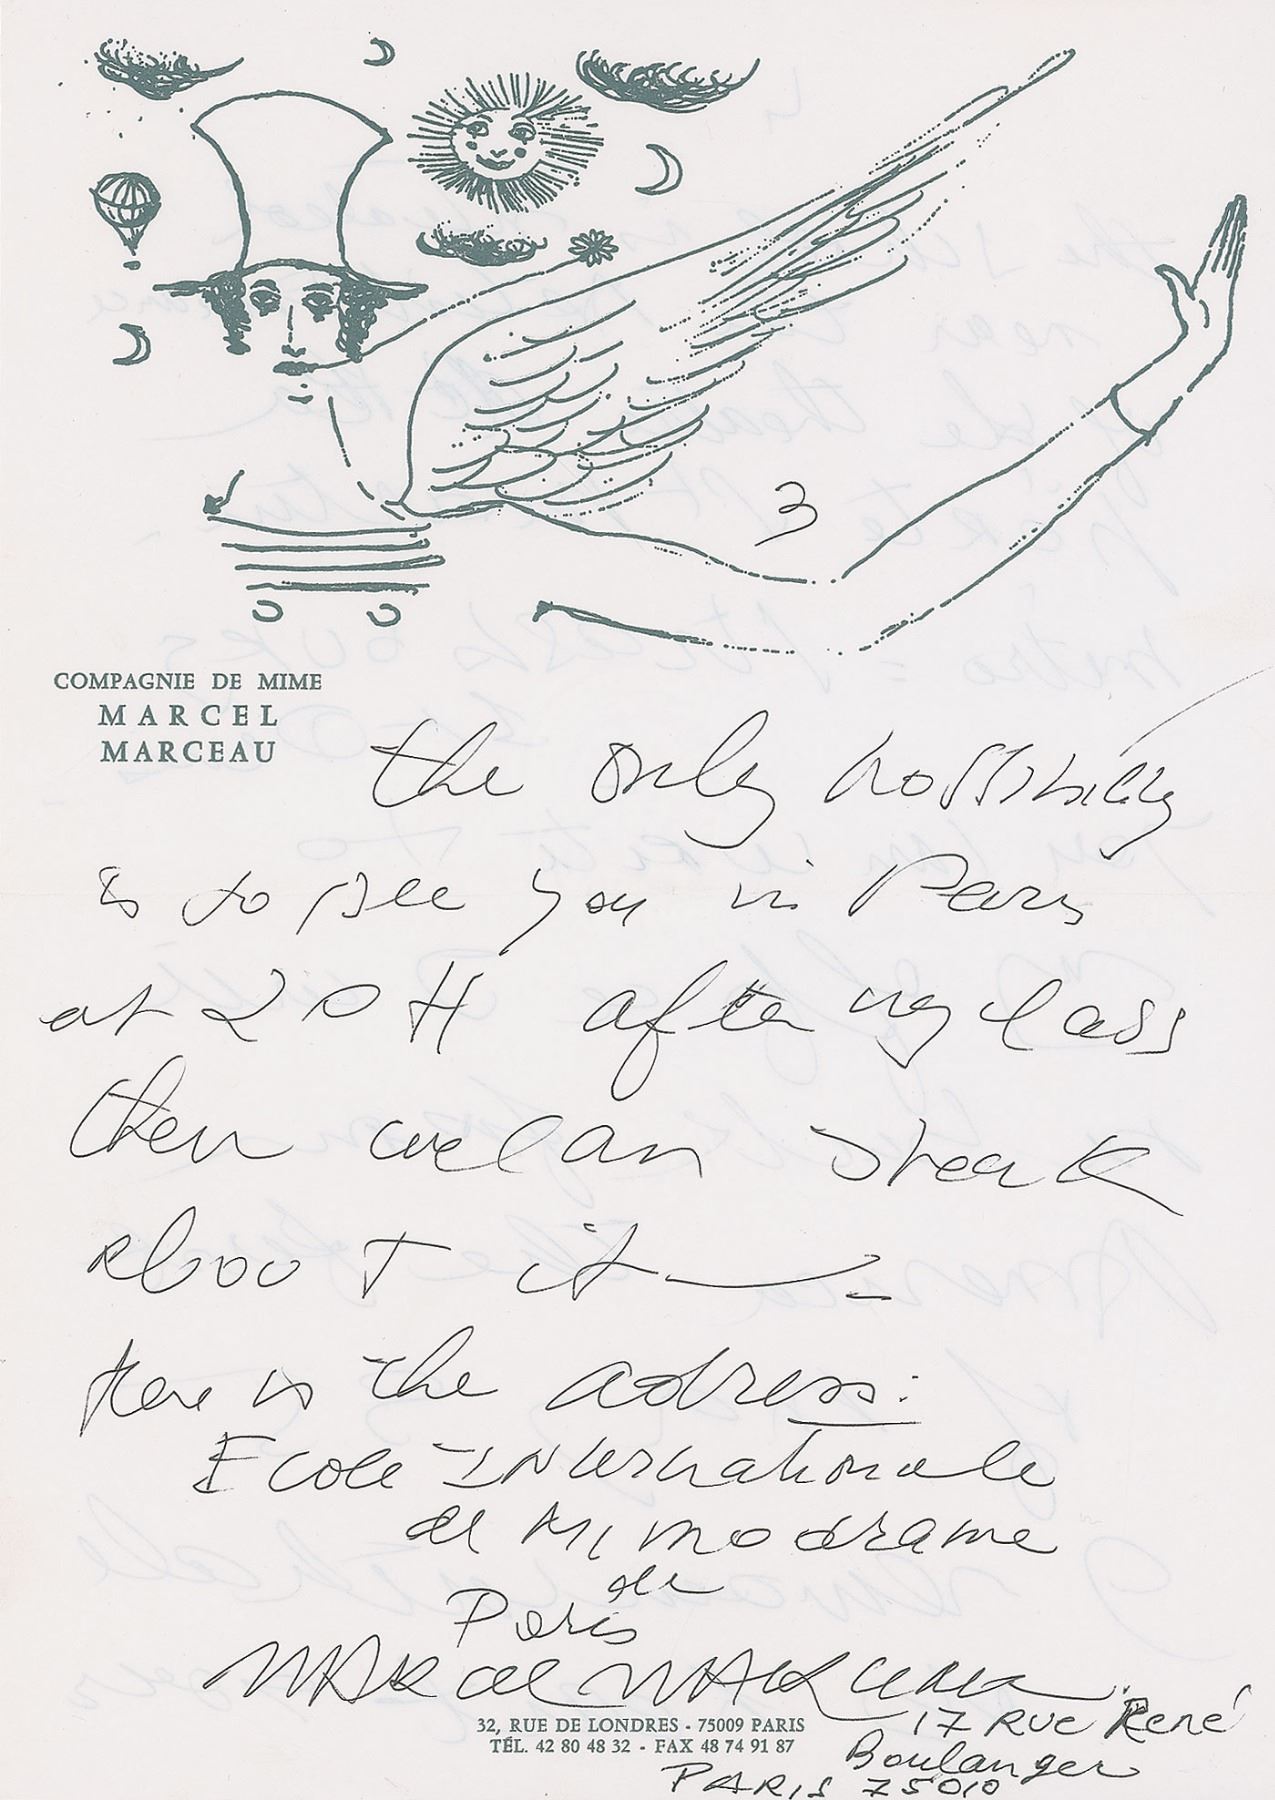 3
COMPAGNIE DE MIME
MARCEL
MARCEAU
the only possibility
is to see you in Paris
at 20H after my class
then we can speak
about it
Here is the adress:
Ecole INternationale
de Mimodrame
de
Paris
MARcel MARceau
32, RUE DE LONDRES - 75009 PARIS
TÉL. 42 80 48 32 - FAX 48 74 91 87
17 RUE René
Boulanger
PARIS 75010